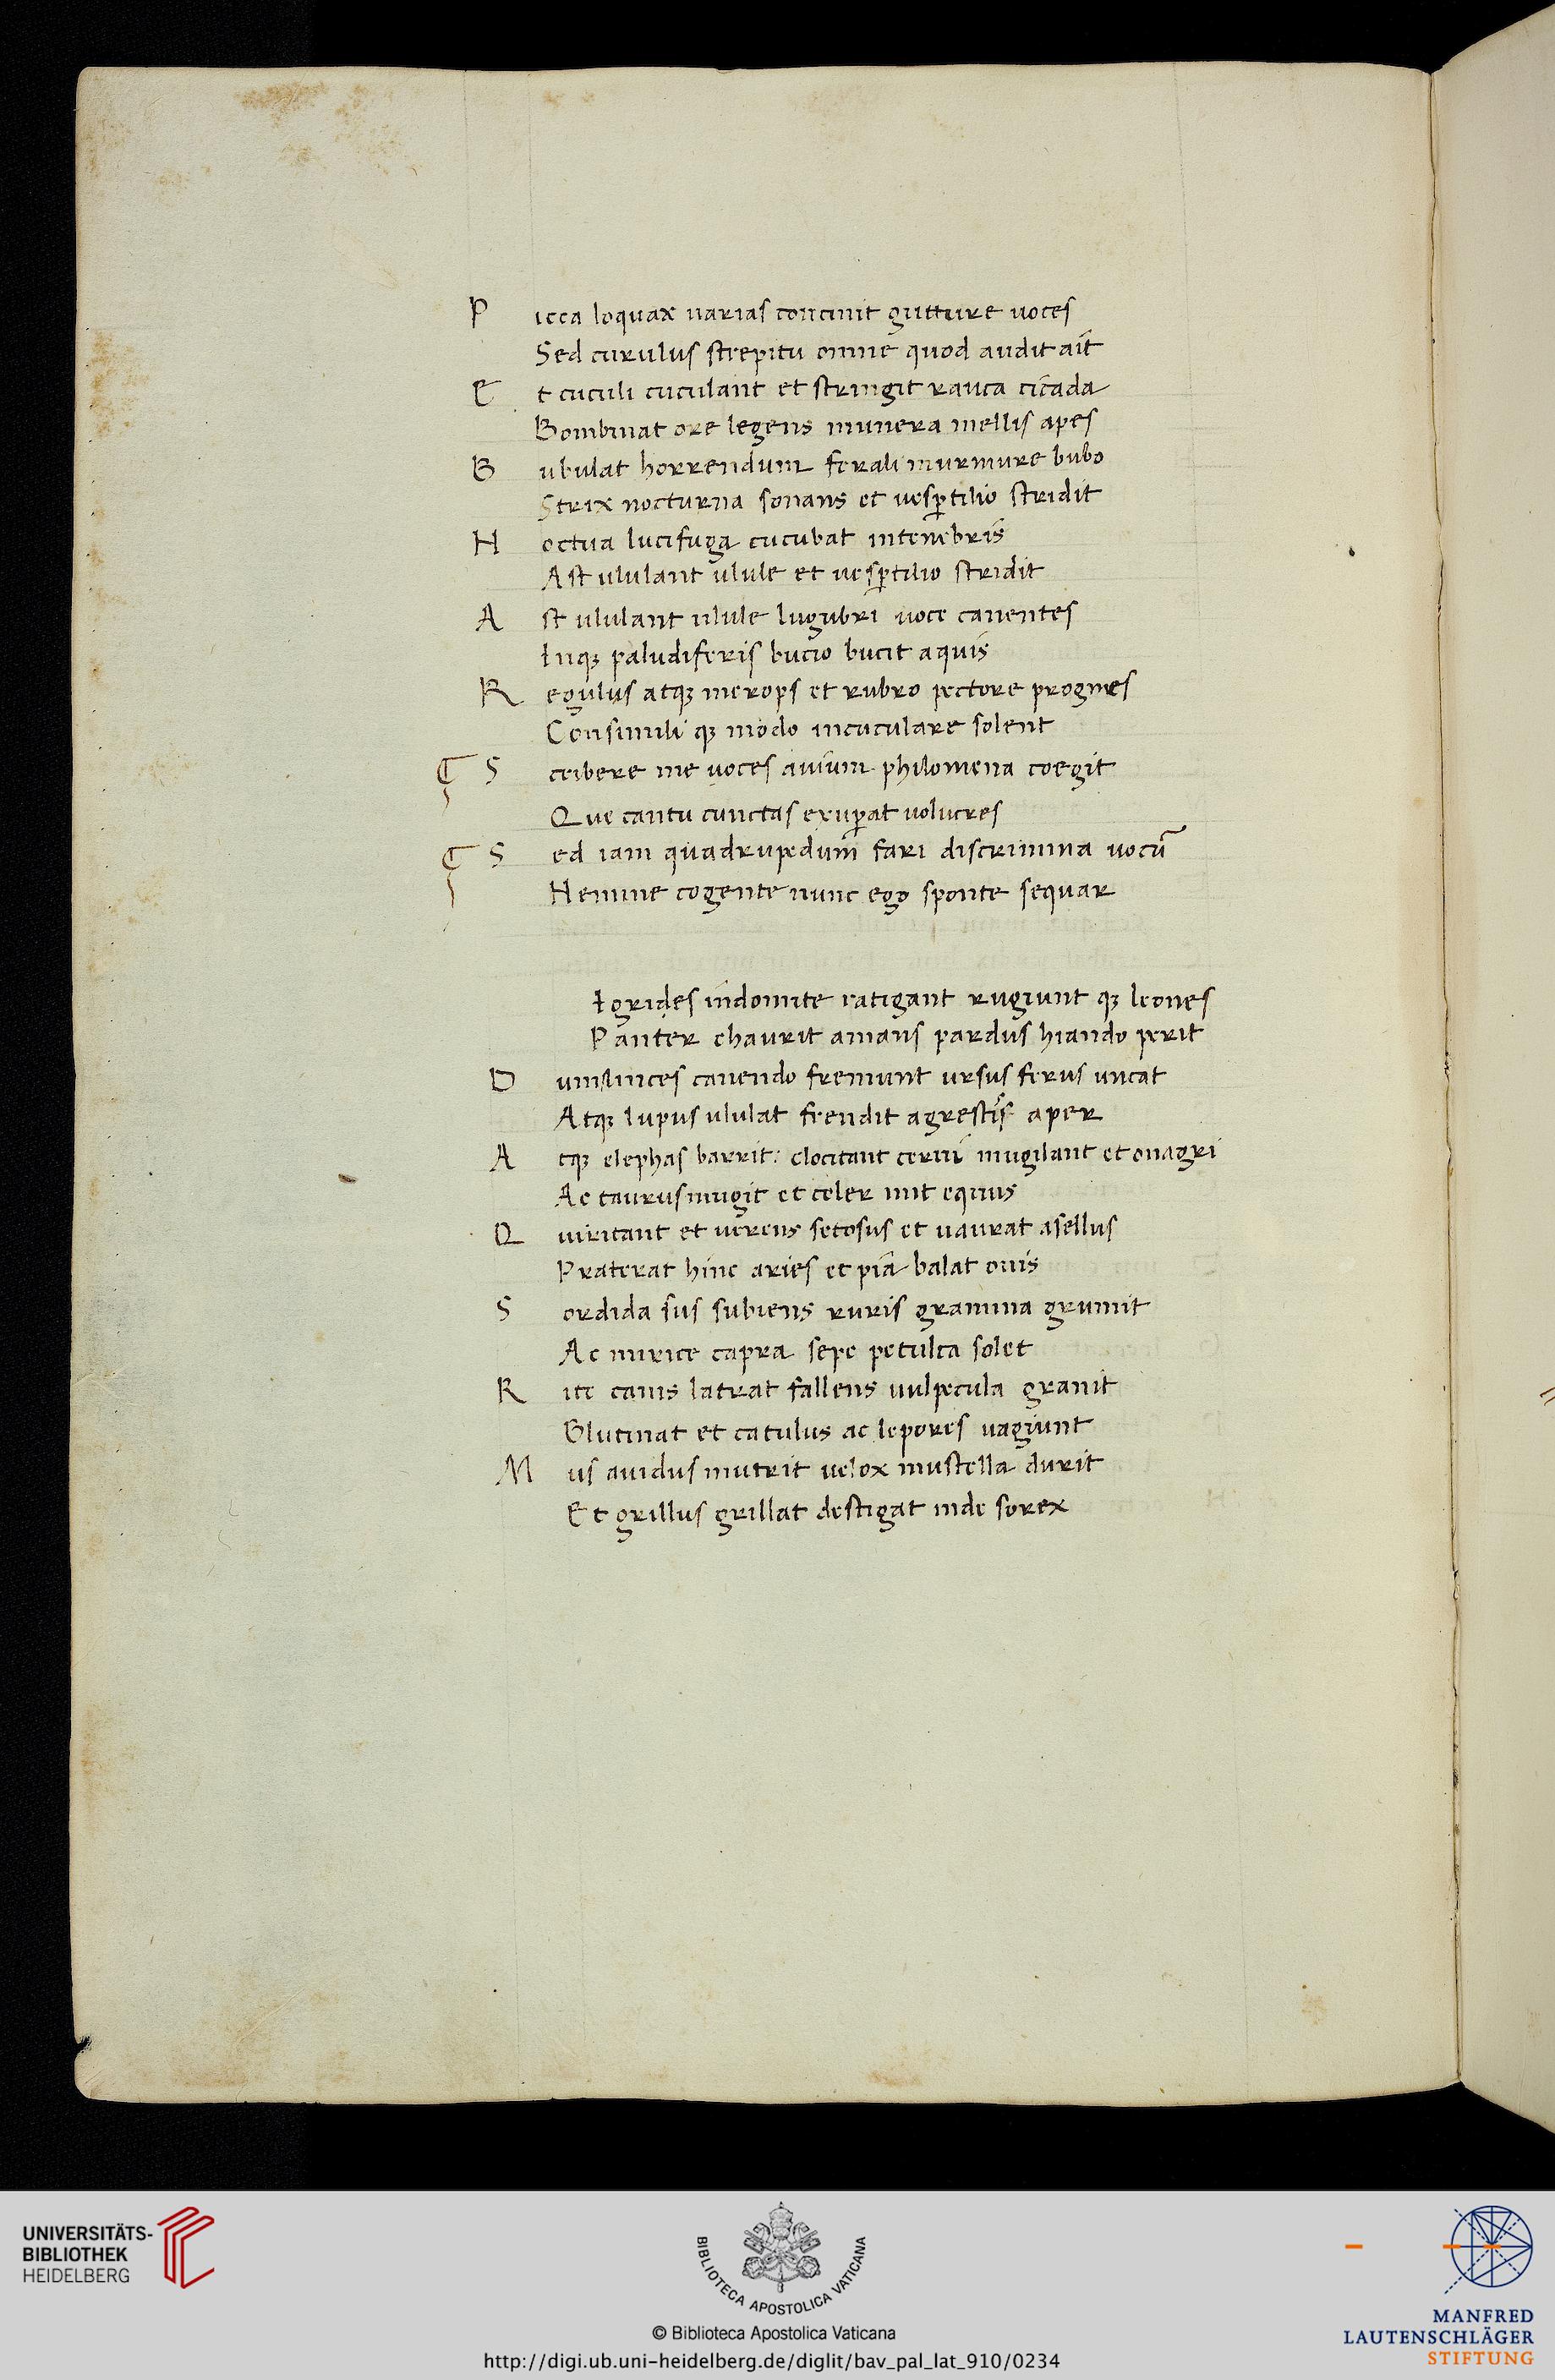 Picca loquax uarias concinit gutture uoces
Sed curulus strepitu omne quod audit ait
Et cuculi cuculant et stringit rauca cicada
Bombinat ore legens munera mellis apes
Bubulat horrendum ferali murmure bubo
Strix nocturna sonans et uesptilio stridit
Noctua lucifuga cucubat intenebris
Ast ululant ulule et uesptilio stridit
Ast ululant ulule lugubri uoce canentes
Inqꝫ paludiferis bucio bucit aquis
Regulus atqꝫ merops et rubro pectore prognes
Consimili qꝫ modo incuculare solent
Scribere me uoces auium philomena coegit
Que cantu cunctas exuꝑat uolucres
Sed iam quadrupedum fari discrimina uocū
Nemine cogente nunc ego sponte sequar
Igrides indomite ratigant rugiunt qꝫ leones
Panter chaurit amans pardus hiando perit
Dum linces canendo fremunt ursus ferus uncat
Atqꝫ lupus ululat frendit agrestis aper
Atqꝫ elephas barrit: clocitant cerui mugilant et onagri
Ac taurus mugit et celer init equus
Quiritant et uerens setosus et uaurat asellus
Praterat hinc aries et pia balat ouis
Sordida sus subiens ruris gramina grunnit
Ac mirice capra sepe petulca solet
Rite canis latrat fallens uulpecula granit
Glutinat et catulus ac lepores uagiunt
Mus auidus mutrit uelox mustella durit
Et grillus grillat destigat inde sorex
UNIVERSITÄTS-
BIBLIOTHEK
HEIDELBERG
BIBLIOTECA APOSTOLICA VATICANA
© Biblioteca Apostolica Vaticana
http://digi.ub.uni-heidelberg.de/diglit/bav_pal_lat_910/0234
MANFRED
LAUTENSCHLÄGER
STIFTUNG